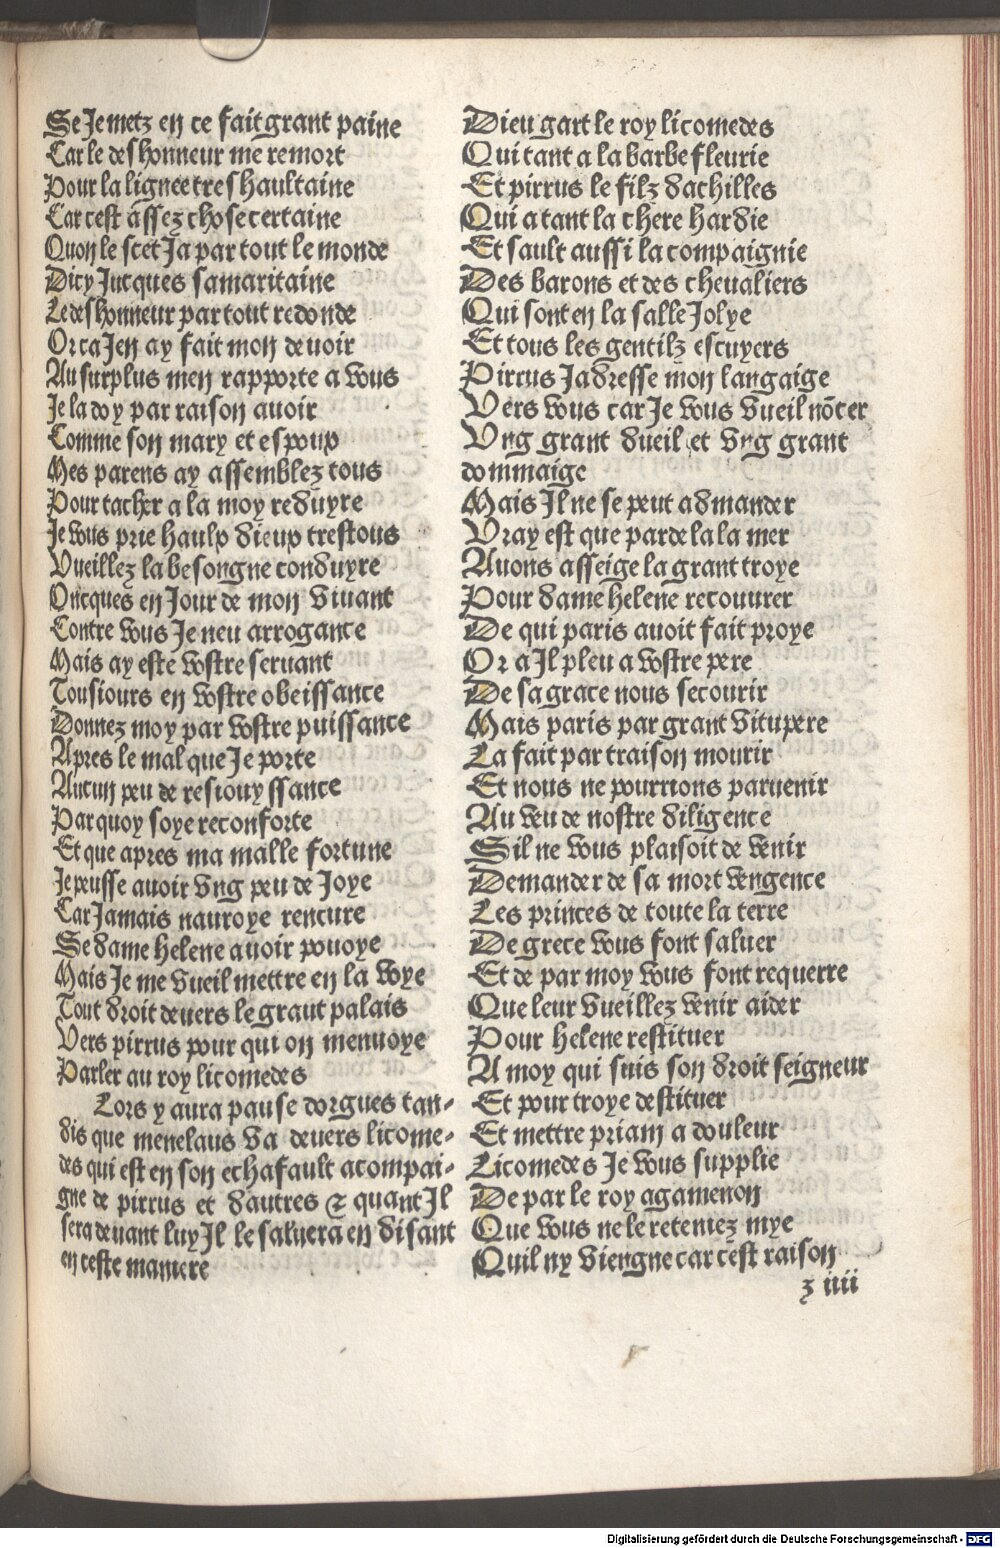 Se Je metz en ce fait grant paine
Car le deshonneur me remort
Pour la lignee treshaultaine
Car cest assez chose certaine
Quon le scet Ja par tout le monde
Dicy Jucques samaritaine
Le deshonneur par tout redonde
Or ca Jen ay fait mon deuoir
Au surplus men rapporte a vous
Je la doy par raison auoir
Comme son mary et espoux
Mes parens ay assemblez tous
Pour tacher a la moy reduyre
Je vous prie haulx dieux trestous
Vueillez la besongne conduyre
Oncques en Jour de mon viuant
Contre vous Je neu arrogance
Mais ay este vostre seruant
Tousiours en vostre obeissance
Donnez moy par vostre puissance
Apres le mal que Je porte
Aucun peu de resiouyssance
Par quoy soye reconforte
Et que apres ma malle fortune
Je peusse auoir vng peu de Joye
Car Jamais nauroye rencure
Se dame helene auoir pouoye
Mais Je me vueil mettre en la voye
Tout droit deuers le graut palais
Vers pirrus pour qui on menuoye
Parler au roy licomedes
Lors y aura pause dorgues tan-
dis que menelaus va deuers licome-
des qui est en son echafault acompai-
gne de pirrus et dautres & quant Jl
sera deuant luy Jl le saluera en disant
en ceste maniere
Dieu gart le roy licomedes
Qui tant a la barbe fleurie
Et pirrus le filz dachilles
Qui a tant la chere hardie
Et sault aussi la compaignie
Des barons et des cheualiers
Qui sont en la salle Jolye
Et tous les gentilz escuyers
Pirrus Jadresse mon langaige
Vers vous car Je vous vueil nõcer
Vng grant dueil et vng grant
dommaige
Mais Jl ne se peut admander
Vray est que par de la la mer
Auons asseige la grant troye
Pour dame helene recouurer
De qui paris auoit fait proye
Or a Jl pleu a vostre pere
De sa grace nous secourir
Mais paris par grant vitupere
La fait par traison mourir
Et nous ne pourrions paruenir
Au veu de nostre diligence
Sil ne vous plaisoit de venir
Demander de sa mort vengence
Les princes de toute la terre
De grece vous font saluer
Et de par moy vous font requerre
Que leur vueillez venir aider
Pour helene restituer
A moy qui suis son droit seigneur
Et pour troye destituer
Et mettre priam a douleur
Licomedes Je vous supplie
De par le roy agamenon
Que vous ne le reteniez mye
Quil ny viengne car cest raison
z iiii
Digitalisierung gefördert durch die Deutsche Forschungsgemeinschaft - DFG